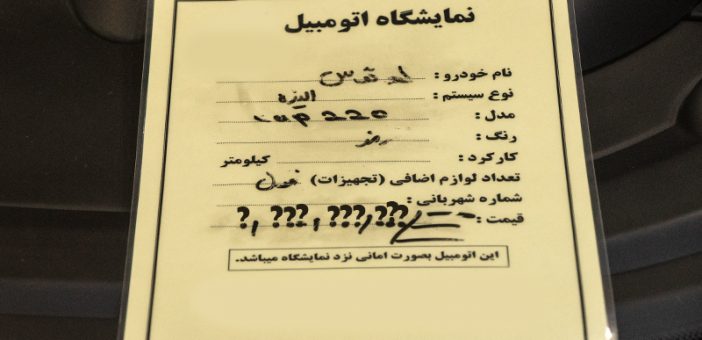 نمایشگاه اتومبیل
نام خودرو : لوتوس
نوع سیستم : الیزه
مدل : 220 cup
رنگ :
کارکرد : کیلومتر
تعداد لوازم اضافی (تجهیزات)
شماره شهربانی :
قیمت : ?, ???, ???, ???
این اتومبیل بصورت امانی نزد نمایشگاه میباشد.